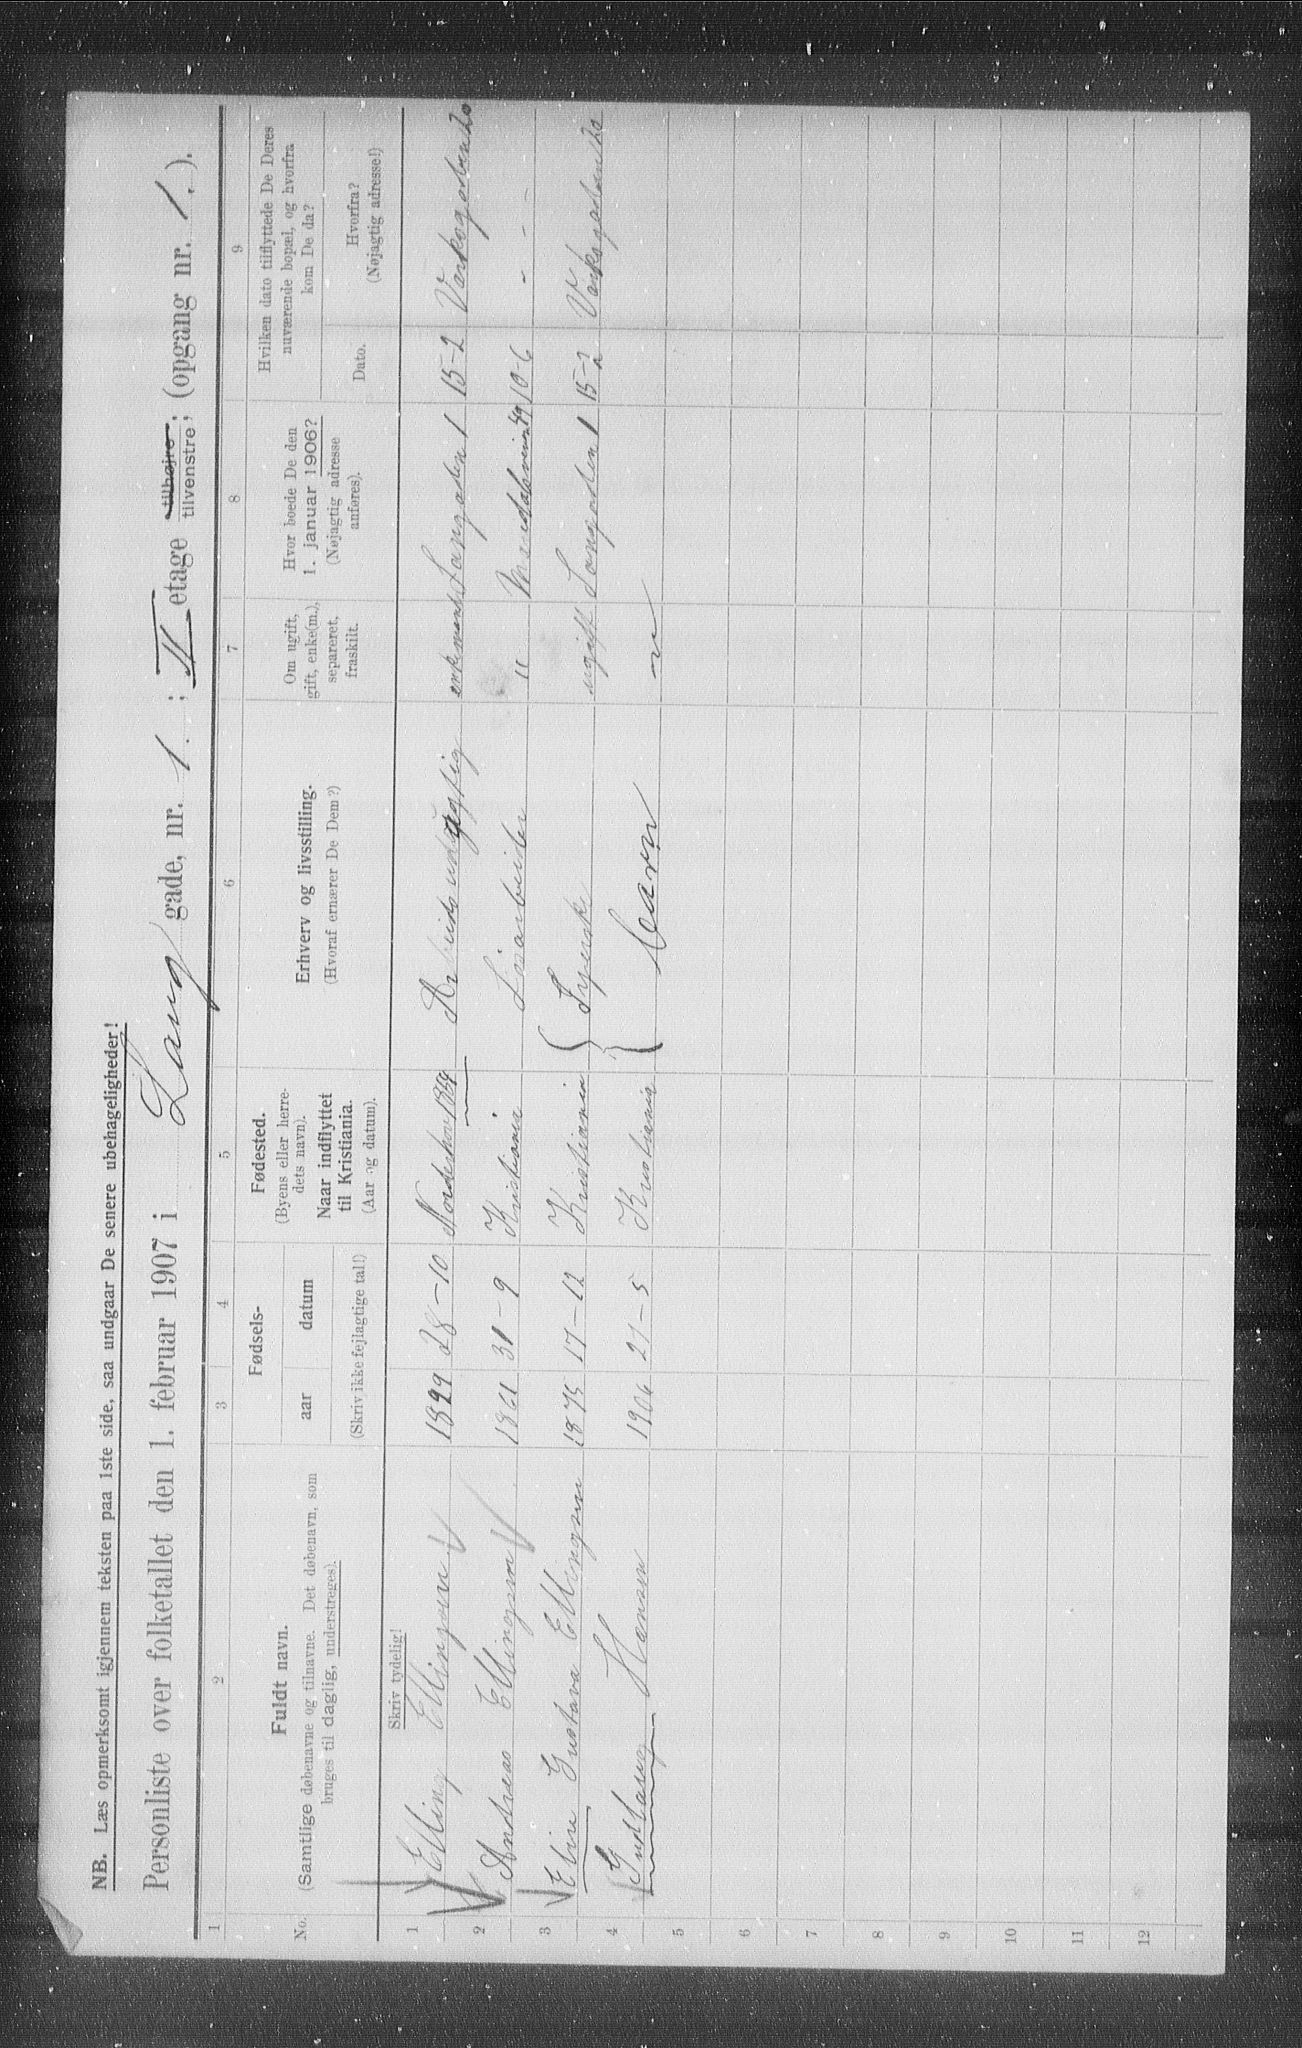 NB. Læs opmerksomt igjennem teksten paa 1ste side, saa undgaar De senere ubehageligheder!
Personliste over folketallet den 1. februar 1907 i Lang gade, nr. 1. ; II etage tilhøjre tilvenstre; (opgang nr. 1.).
1 2 3 4 5 6 7 8 9
No.
Fuldt navn.
(Samtlige døbenavne og tilnavne. Det døbenavn, som
bruges til daglig, understreges).
Fødsels-
aar datum
(Skriv ikke fejlagtige tal!)
Fødested.
(Byens eller herre-
dets navn).
Naar indflyttet
til Kristiania.
(Aar og datum).
Erhverv og livsstilling.
(Hvoraf ernærer De Dem?)
Om ugift,
gift, enke(m.),
separeret,
fraskilt.
Hvor boede De den
1. januar 1906?
(Nøjagtig adresse
anføres).
Hvilken dato tilflyttede De Deres
nuværende bopæl, og hvorfra
kom De da?
Dato.
Hvorfra?
(Nøjagtig adresse!)
Skriv tydelig!
1 Elling Ellingsen 1829 28-10 Norderhov 1864 Arbeidsudygtig enkemand Langaden 1 15-2 Verksgaden 20
2 Andreas Ellingsen 1861 31-9 Kristiania Løsarbeider " 49 10-6 - - -
3 Eline Gustava Ellingsen 1875 17-12 Kristiania { Syerske ugift Langaden 1 15-2 Verksgaden 20
4 Gudlaug Hansen 1906 21-5 Kristiania { barn
5
6
7
8
9
10
11
12